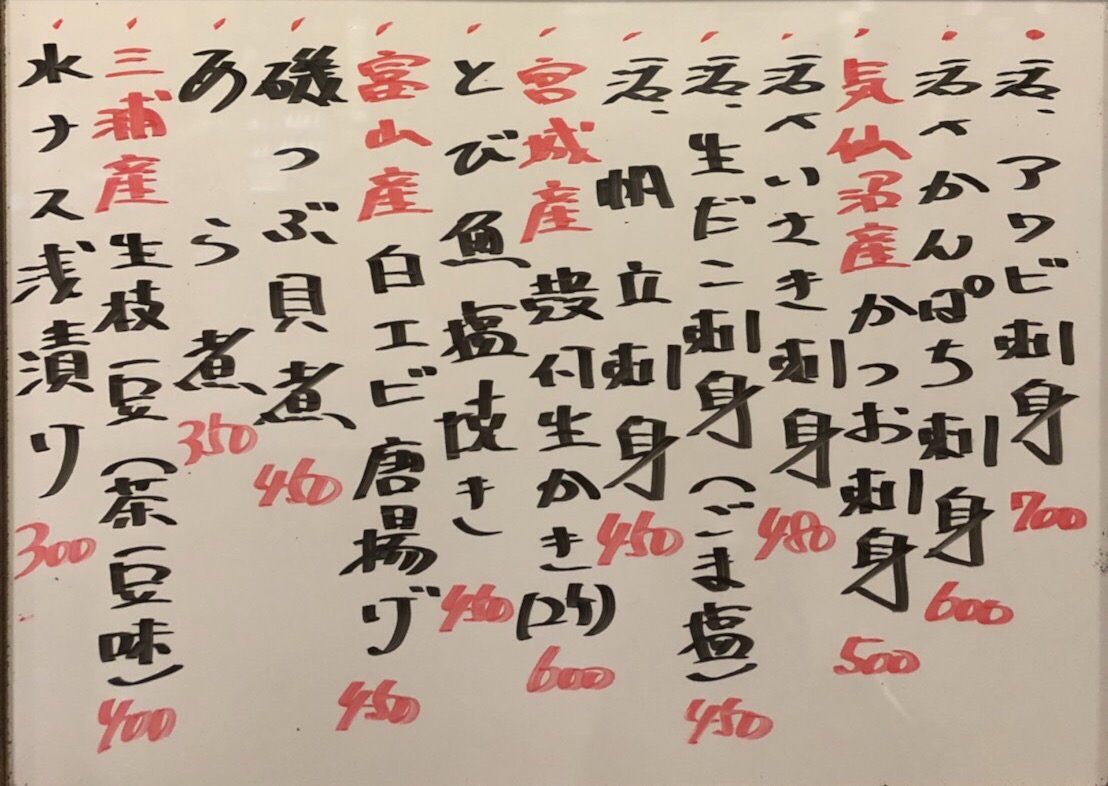 ・活、アワビ刺身 700
・活〆かんぱち刺身 600
・気仙沼産かつお刺身 500
・活〆いさき刺身 480
・活、生だこ刺身(ごま塩) 450
・活、帆立刺身 450
・宮城産殻付生かき(2ケ) 600
・とび魚塩焼き 450
・富山産白エビ唐揚げ 450
・磯つぶ貝煮 450
・あら煮 350
・三浦産生枝豆(茶豆味) 400
・水ナス浅漬り 300